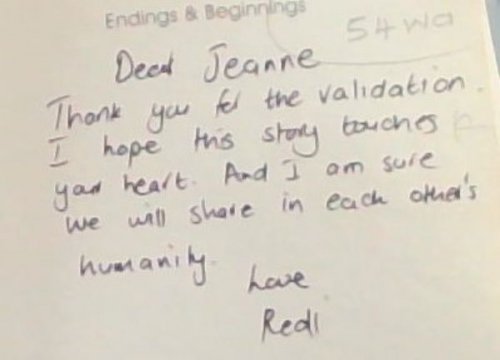 Endings & Beginnings
54wa
Dear Jeanne
Thank you for the validation.
I hope this story touches
your heart. And I am sure
we will share in each other's
humanity.
Love
Redi